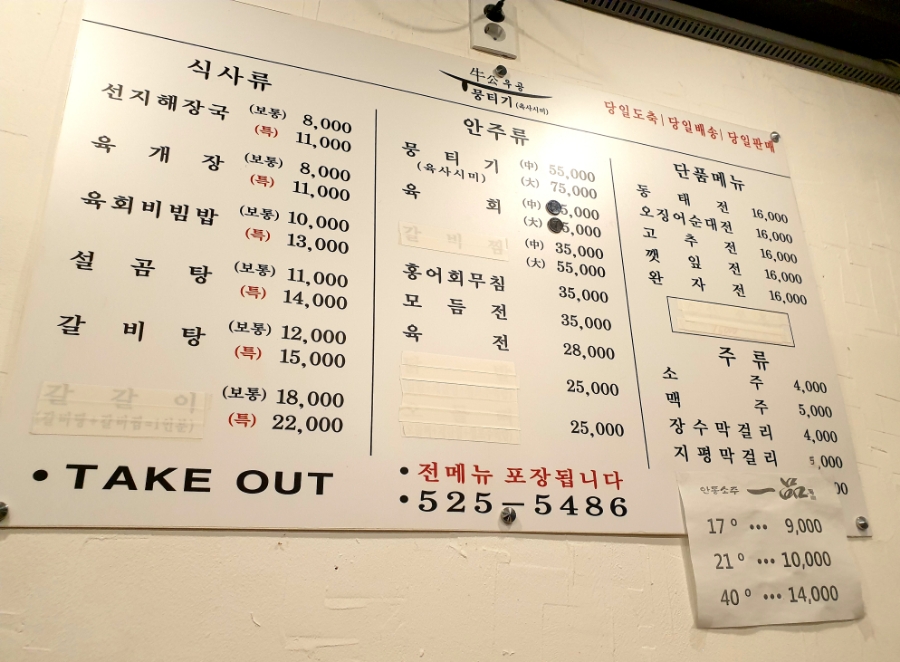 牛公 우공
뭉티기 (육사시미)
당일도축 | 당일배송 | 당일판매
식사류
선지해장국 (보통) 8,000
(특) 11,000
육개장 (보통) 8,000
(특) 11,000
육회비빔밥 (보통) 10,000
(특) 13,000
설곰탕 (보통) 11,000
(특) 14,000
갈비탕 (보통) 12,000
(특) 15,000
갈갈이 (보통) 18,000
(특) 22,000
안주류
뭉티기 (中) 55,000
(육사시미) (大) 75,000
육회 (中) 5,000
(大) 5,000
갈비찜 (中) 35,000
(大) 55,000
홍어회무침 35,000
모듬전 35,000
육전 28,000
25,000
25,000
단품메뉴
동태전 16,000
오징어순대전 16,000
고추전 16,000
깻잎전 16,000
완자전 16,000
주류
소주 4,000
맥주 5,000
장수막걸리 4,000
지평막걸리 5,000
00
• TAKE OUT
• 전메뉴 포장됩니다
• 525-5486
안동소주 一品
17° ••• 9,000
21° ••• 10,000
40° ••• 14,000